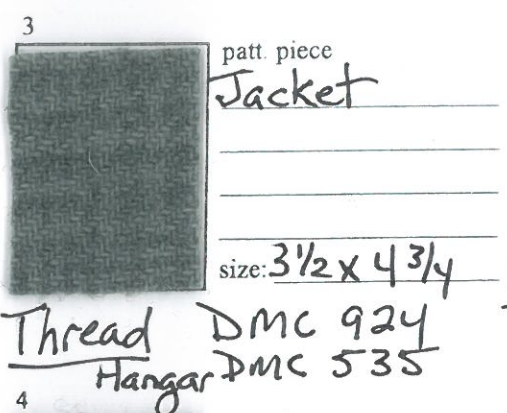 3
patt. piece
Jacket
size: 3 1/2 x 4 3/4
Thread DMC 924
Hangar DMC 535
4